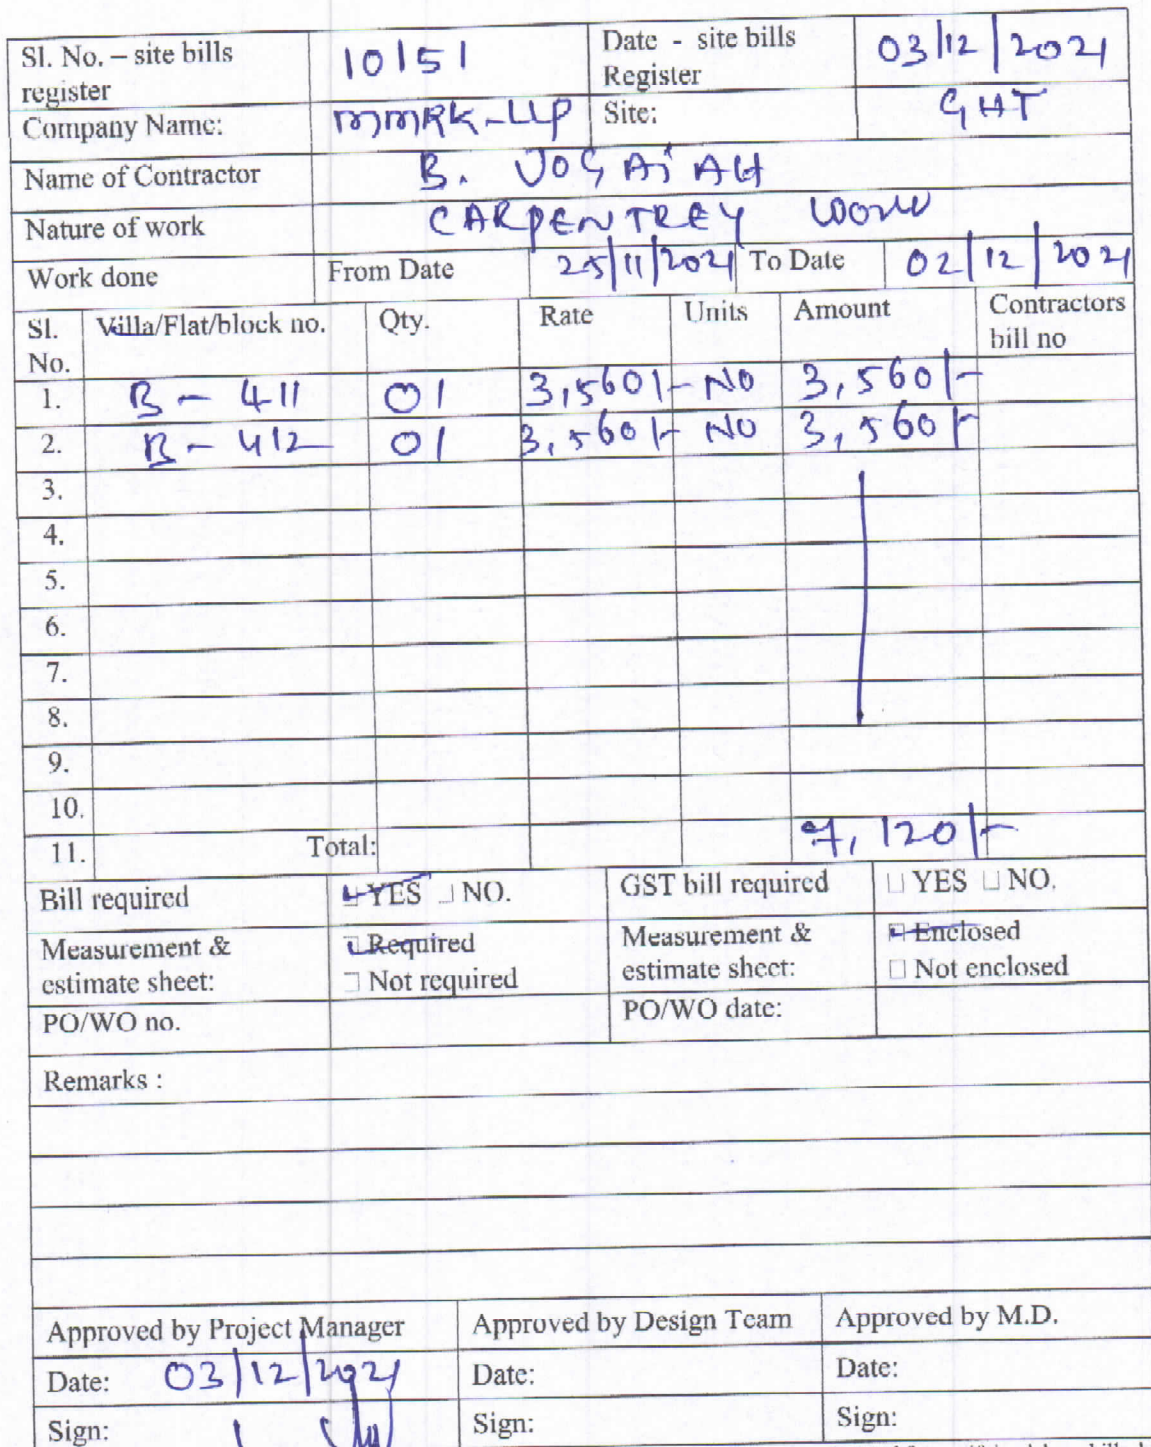 Sl. No. – site bills register 10151 Date - site bills Register 03/12/2021
Company Name: MMRK-LLP Site: GHT
Name of Contractor B. JOGAiAH
Nature of work CARPENTREY WORK
Work done From Date 25/11/2021 To Date 02/12/2021
Sl. No. Villa/Flat/block no. Qty. Rate Units Amount Contractors bill no
1. B - 411 01 3,560/- NO 3,560/-
2. B - 412 01 3,560/- NO 3,560/-
3.
4.
5.
6.
7.
8.
9.
10.
11. Total: 7,120/-
Bill required YES NO. GST bill required YES NO.
Measurement & estimate sheet: Required Not required Measurement & estimate sheet: Enclosed Not enclosed
PO/WO no. PO/WO date:
Remarks :
Approved by Project Manager Approved by Design Team Approved by M.D.
Date: 03/12/2021 Date: Date:
Sign: Sign: Sign: